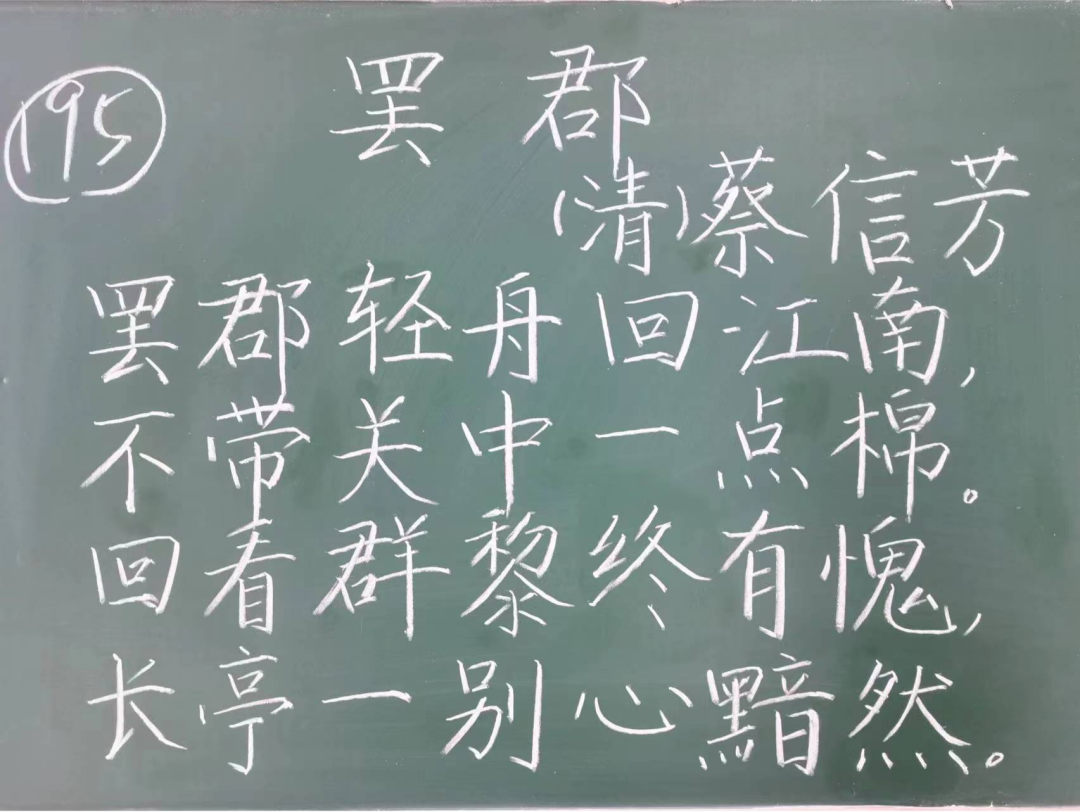 195
罢郡
(清)蔡信芳
罢郡轻舟回江南,
不带关中一点棉。
回看群黎终有愧,
长亭一别心黯然。